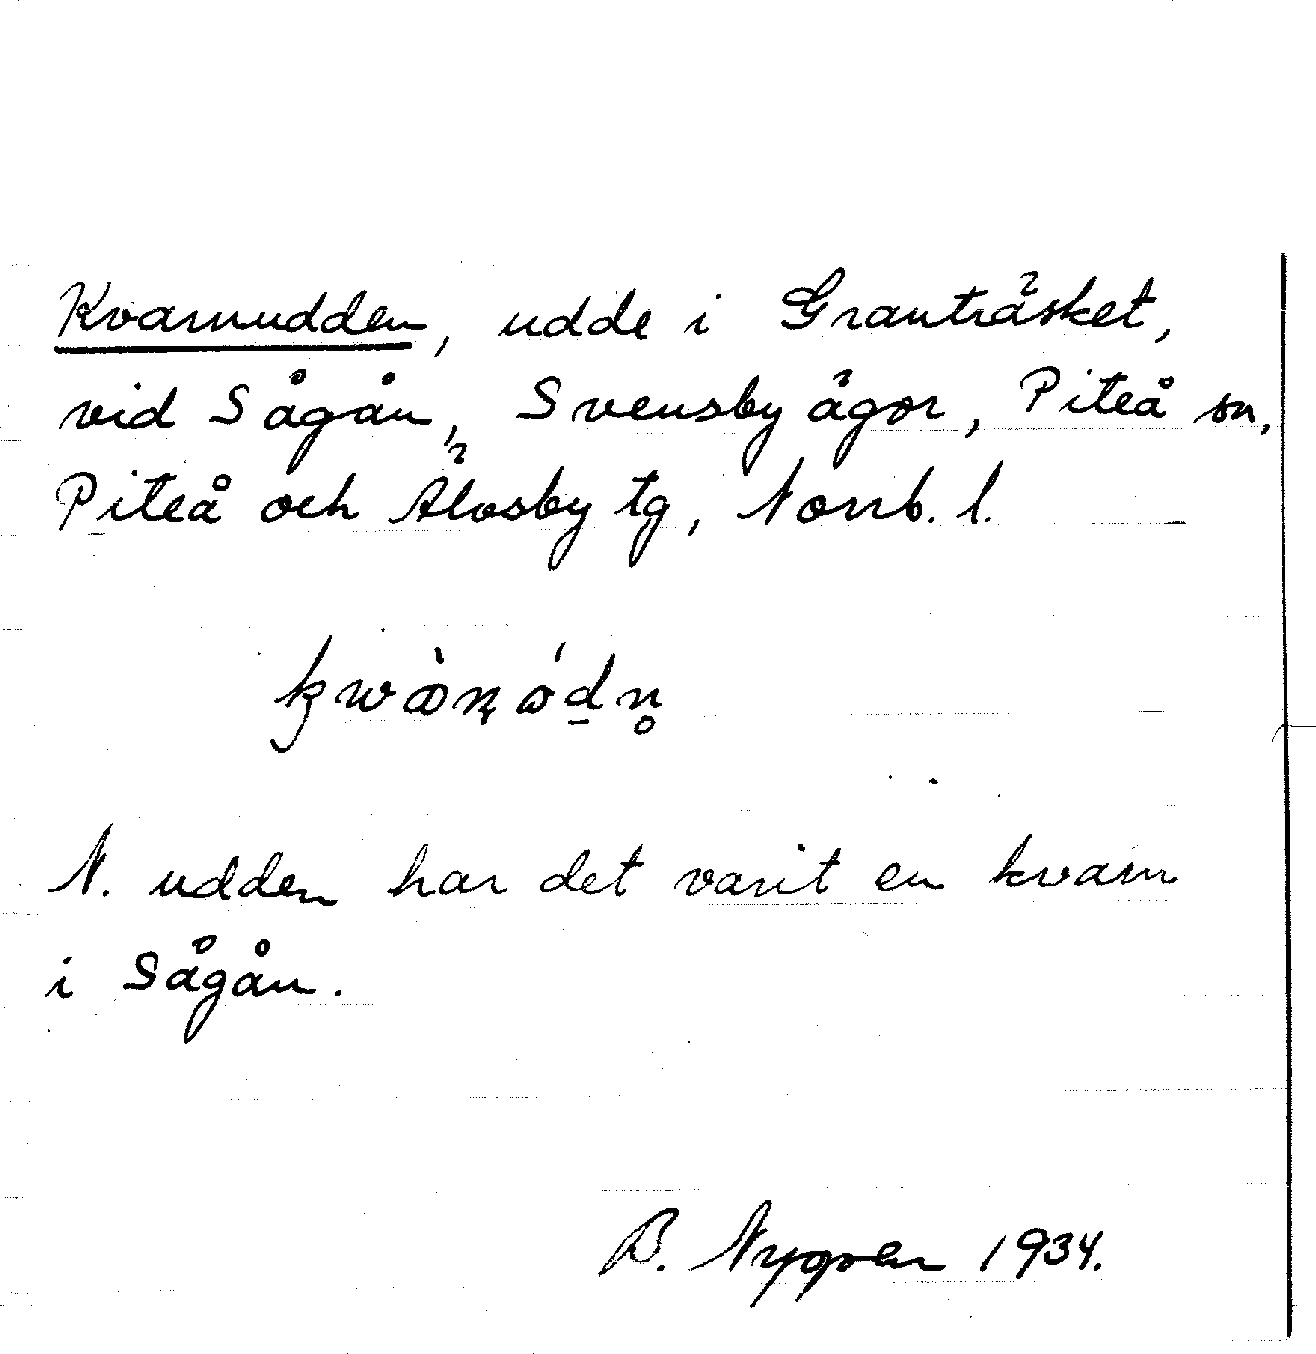 Kvarnudden, udde i Granträsket,
vid Sågån, Svensby ägor, Piteå sn,
Piteå och Älvsby tg, Norrb. l.
N. udden har det varit en kvarn
i Sågån.
B. Nygren 1934.